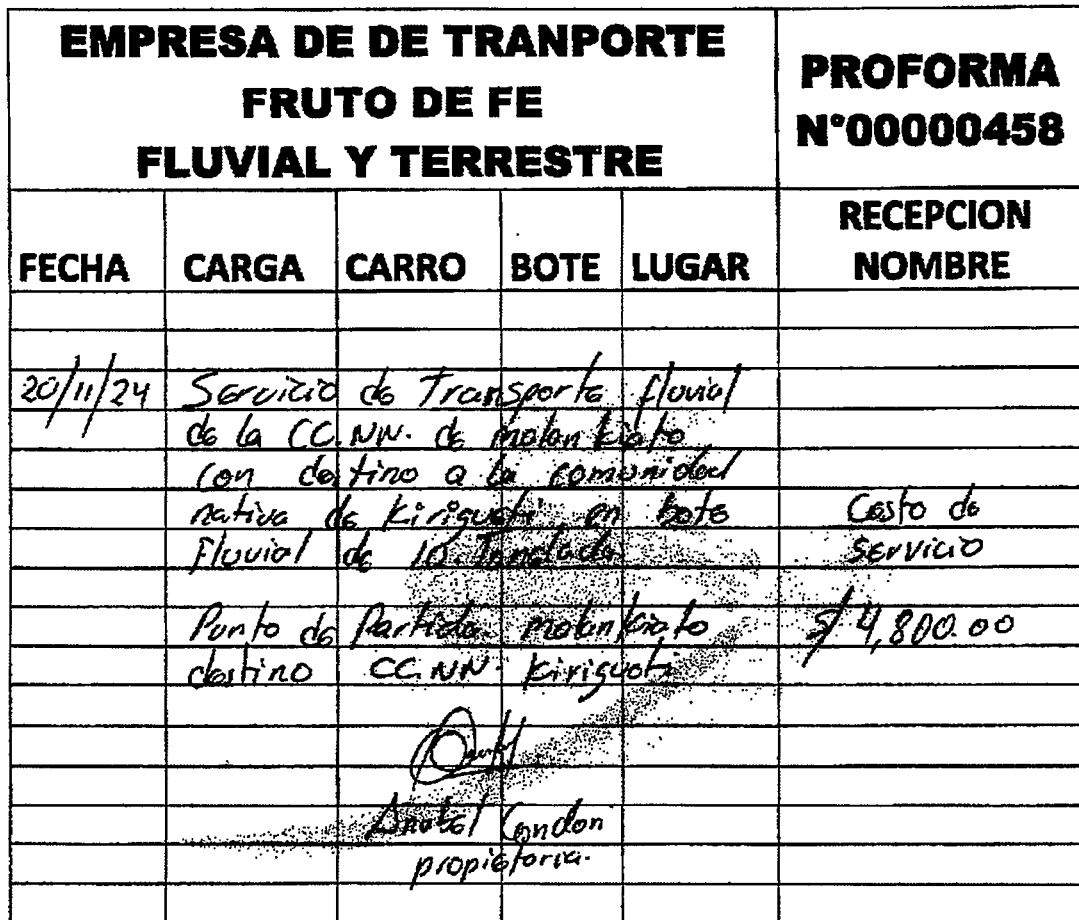 EMPRESA DE DE TRANPORTE
FRUTO DE FE
FLUVIAL Y TERRESTRE
PROFORMA
N°00000458
FECHA CARGA CARRO BOTE LUGAR RECEPCION NOMBRE
20/11/24 Servicio de Transporte fluvial
de la CC.NN. de matankiato
con destino a la comunidad
nativa de Kirigueti en bote
Fluvial de 10. Tonelada
Costo de
Servicio
Punto de Partida matankiato S/ 4,800.00
destino CC.NN. Kirigueti
Anabel Condon
propietaria.